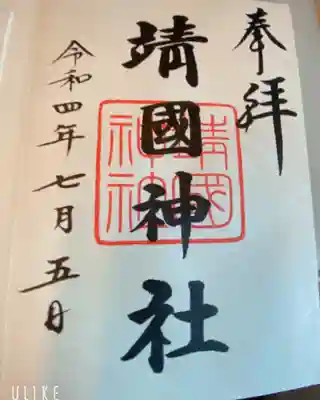 奉拝
靖國神社
靖國
神社
令和四年七月五日
ULIKE